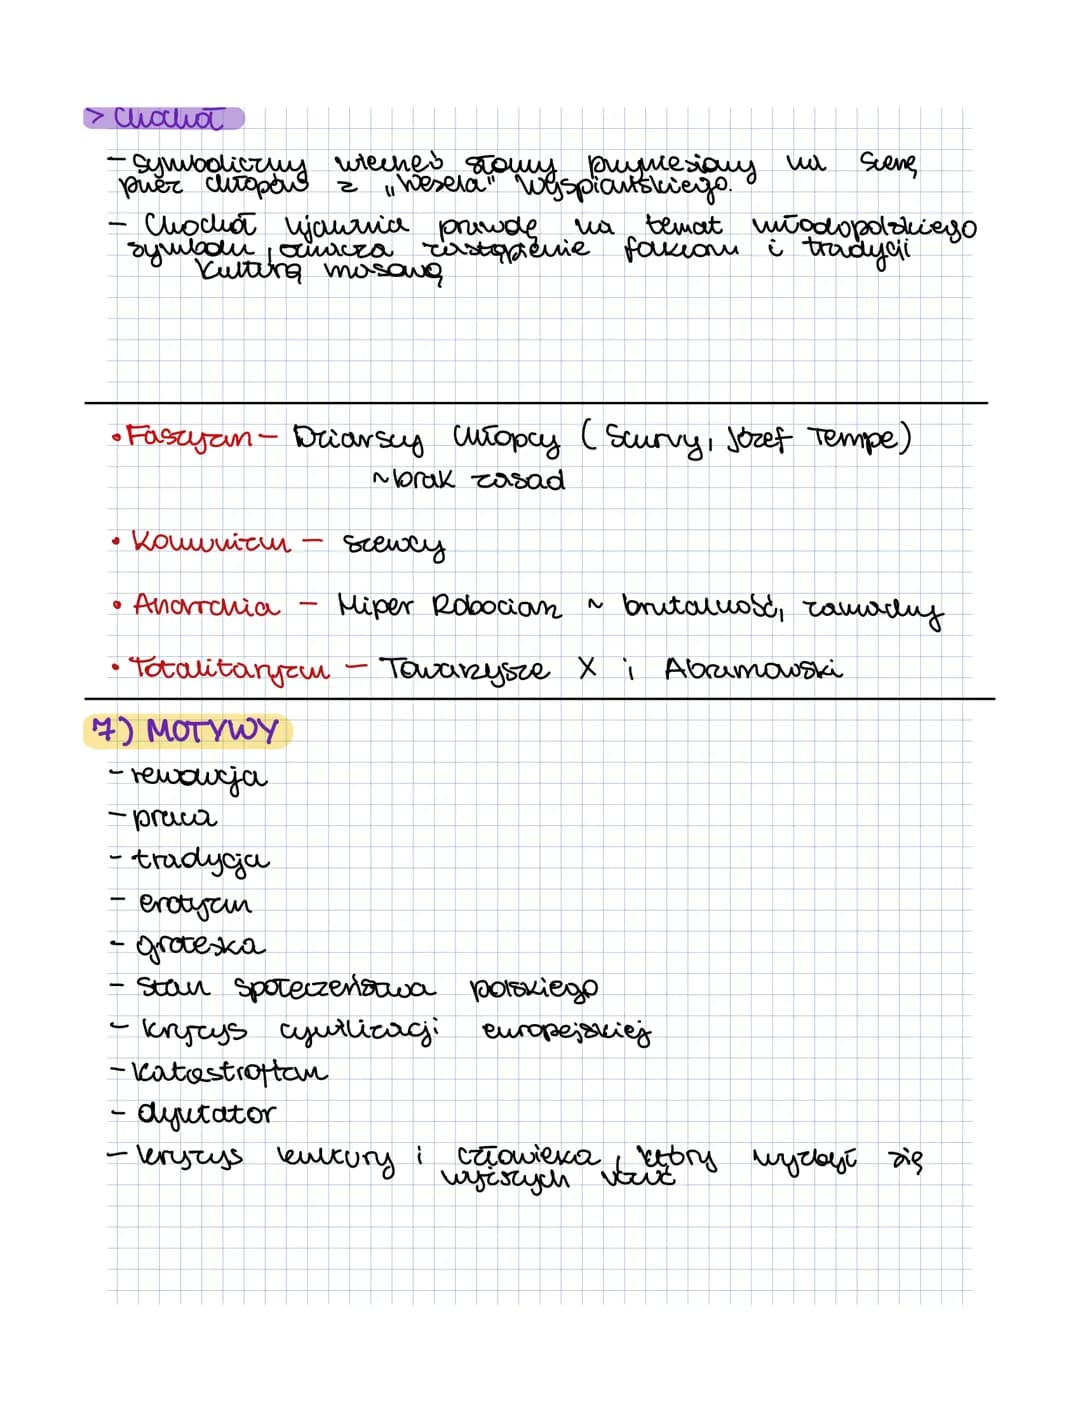 > Chochoł
- symboliczny wiecheć słomy przyniesiony na scenę
przez chłopów z „Wesela" Wyspiańskiego.
- Chochoł ujawnia prawdę na temat młodopolskiego
symbolu, oznacza zastąpienie folkloru i tradycji
kulturą masową
• Faszyzm - Dziarscy Chłopcy (Scurvy, Józef Tempe)
~ brak zasad
• Komunizm - szewcy
• Anarchia - Hiper Robociarz ~ brutalność, zamachy
• Totalitaryzm - Towarzysze X i Abramowski
7) MOTYWY
- rewolucja
- praca
- tradycja
- erotyzm
- groteska
- stan społeczeństwa polskiego
- kryzys cywilizacji europejskiej
- katastrofizm
- dyktator
- kryzys kultury i człowieka, który wyzbył się
wyższych uczuć